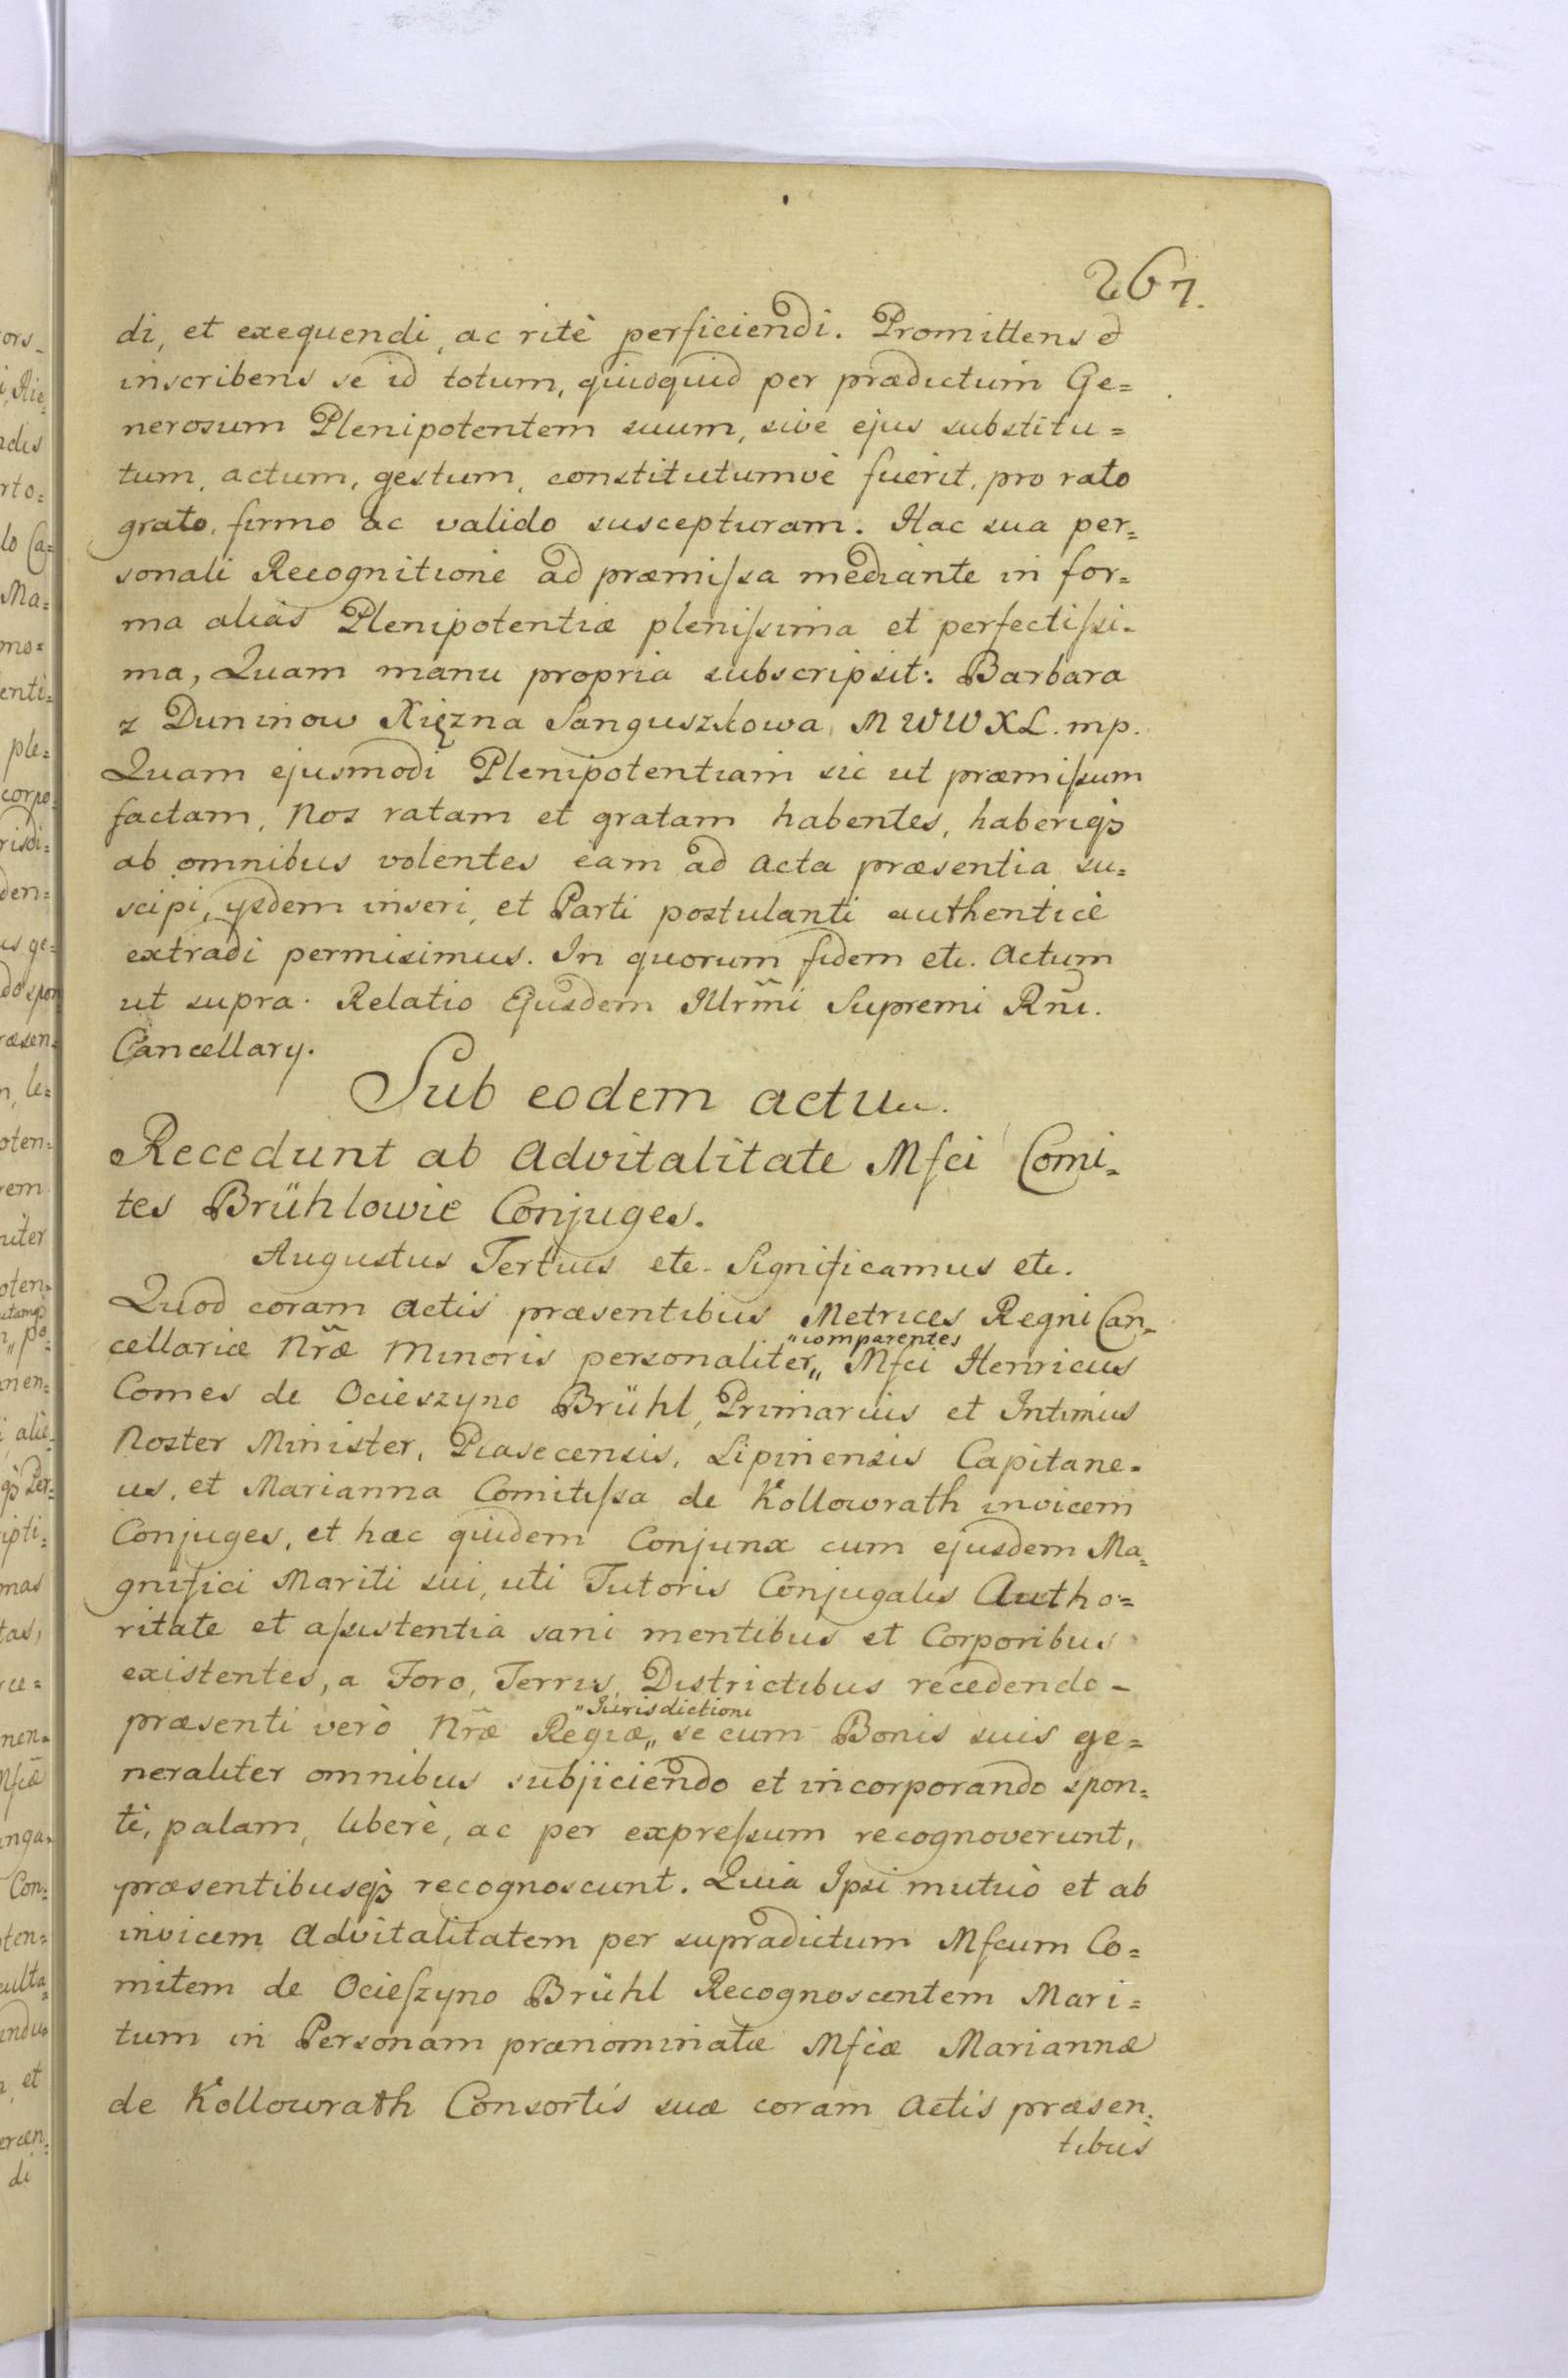 267.
di, et exequendi, ac ritè perficiendi. Promittens et
inscribens se id totum, quidquid per prædictum Ge=
nerosum Plenipotentem suum, sive ejus substitu=
tum, actum, gestum, constitutumvè fuerit, pro rato
grato, firmo ac valido suscepturam. Hac sua per=
sonali Recognitione ad præmiſsa mediante in for=
ma alias Plenipotentiæ pleniſsima et perfectiſsi=
ma, Quam manu propria subscripsit: Barbara
z Duninow Xiężna Sanguszkowa, M W W X L. mp.
Quam ejusmodi Plenipotentiam sic ut præmiſsum
factam, Nos ratam et gratam habentes, haberiqȝ
ab omnibus volentes eam ad acta præsentia su=
scipi, ijsdem inseri, et Parti postulanti authenticè
extradi permisimus. In quorum fidem etc. Actum
ut supra. Relatio Ejusdem Illrm̃i Supremi Rñi.
Cancellarij.
Sub eodem actu.
Recedunt ab Advitalitate Mſci Comi=
tes Brühlowie Conjuges.
Augustus Tertius etc. Significamus etc.
Quod coram Actis præsentibus Metrices Regni Can=
"comparentes
cellariæ Nr̃æ Minoris personaliter„ Mſci Henricus
Comes de Ocieszyno Brühl, Primarius et Intimus
Noster Minister, Piasecensis, Lipinensis Capitane=
us, et Marianna Comitiſsa de Kollowrath invicem
Conjuges, et hæc quidem Conjunx cum ejusdem Ma=
gnifici Mariti sui, uti Tutoris Conjugalis Autho=
ritate et aſsistentia sani mentibus et Corporibus
existentes, a Foro, Terris, Districtibus recedendo –
"Jurisdictioni
præsenti verò Nr̃æ Regiæ„ se cum Bonis suis ge=
neraliter omnibus subjiciendo et incorporando spon=
tè, palam, liberè, ac per expreſsum recognoverunt,
præsentibusqȝ recognoscunt. Quia Ipsi mutuò et ab
invicem Advitalitatem per supradictum Mſcum Co=
mitem de Ocieſzyno Brühl Recognoscentem Mari=
tum in Personam prænominatæ Mſcæ Mariannæ
de Kollowrath Consortis suæ coram Actis præsen=
tibus